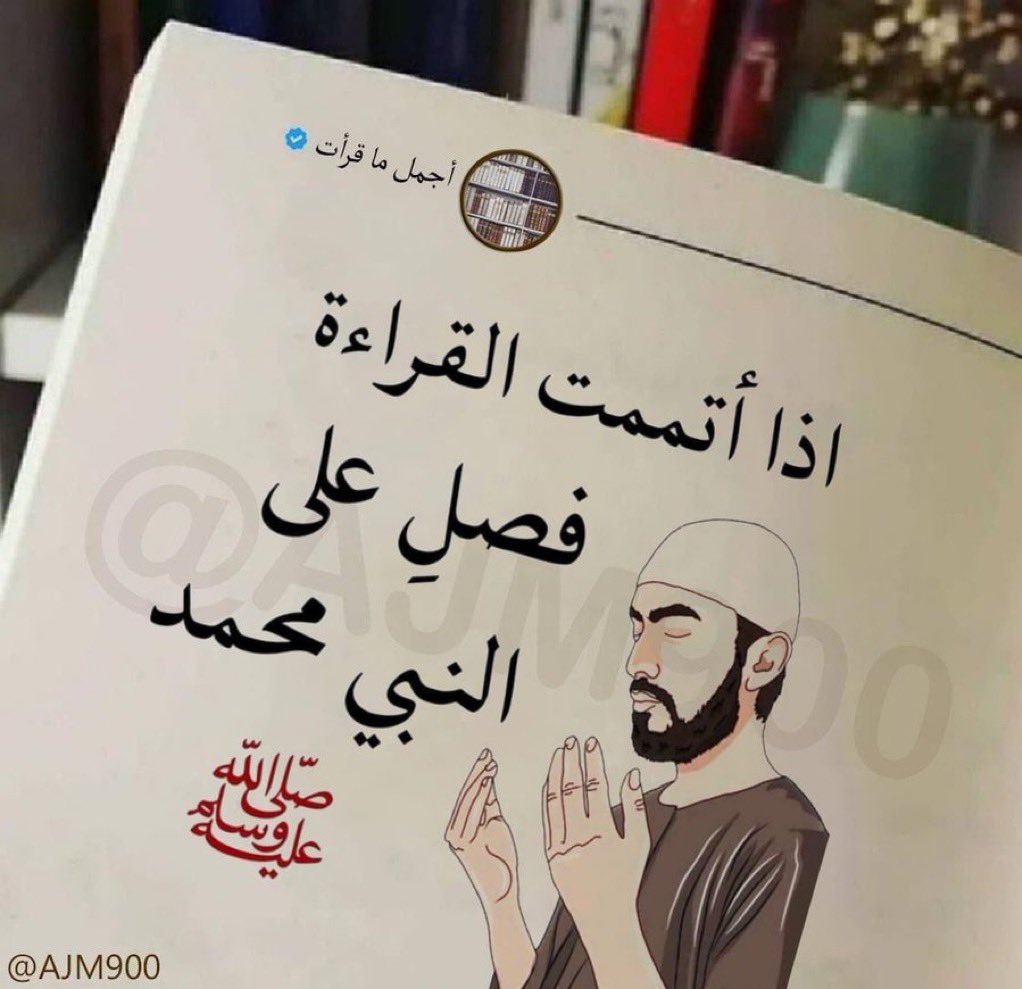 أجمل ما قرأت
اذا أتممت القراءة
فصلِ على
النبي محمد
صلى الله
عليه وسلم
@AJM900
@AJM900